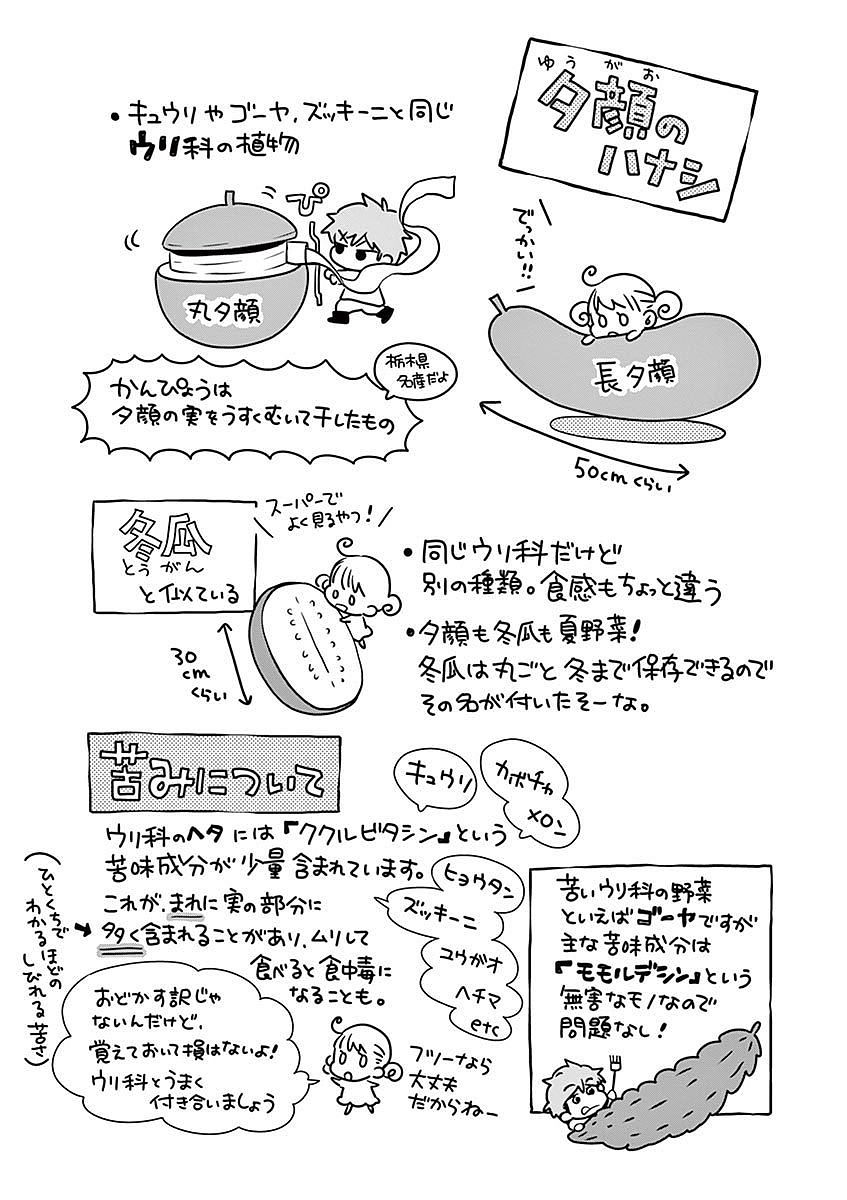 ゆうがお
夕顔の
ハナシ
• キュウリやゴーヤ、ズッキーニと同じ
ウリ科の植物
ぴ
丸夕顔
でっかい!!
長夕顔
50cmくらい
栃木県
名産だよ
かんぴょうは
夕顔の実をうすくむいて干したもの
冬瓜
とうがん
と似ている
スーパーで
よく見るやつ!
30
cm
くらい
• 同じウリ科だけど
別の種類。食感もちょっと違う
• 夕顔も冬瓜も夏野菜!
冬瓜は丸ごと冬まで保存できるので
その名が付いたそーな。
苦みについて
キュウリ
カボチャ
メロン
ウリ科のヘタには『ククルビタシン』という
苦味成分が少量含まれています。
これが、まれに実の部分に
多く含まれることがあり、ムリして
食べると食中毒に
なることも。
(ひとくちで
わかるほどの
しびれる苦さ)
ヒョウタン
ズッキーニ
ユウガオ
ヘチマ
etc
おどかす訳じゃ
ないんだけど、
覚えておいて損はないよ!
ウリ科とうまく
付き合いましょう
フツーなら
大丈夫
だからねー
苦いウリ科の野菜
といえばゴーヤですが
主な苦味成分は
『モモルデシン』という
無害なモノなので
問題なし!